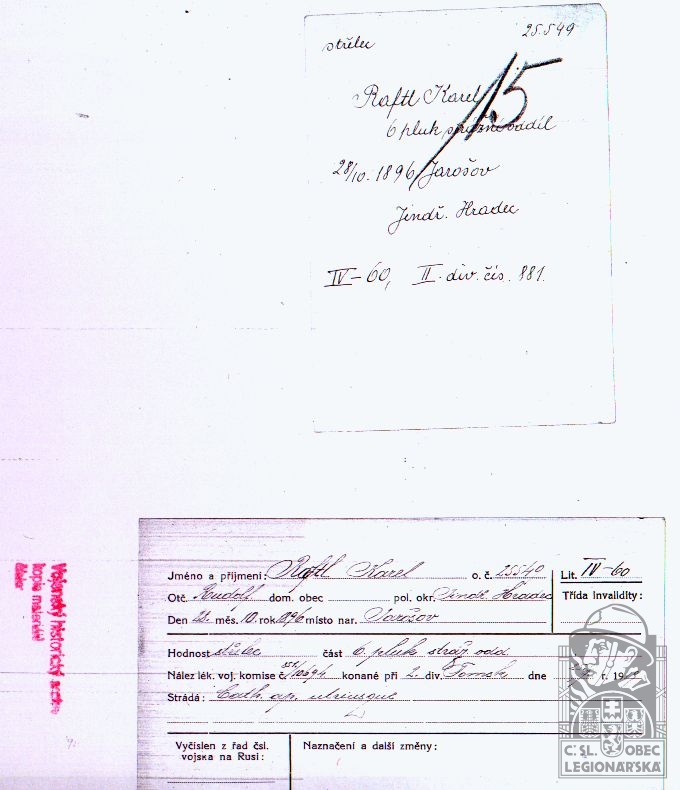 25.549
střelec
15
Raftl Karel
6 pluk strážní oddíl
28/10. 1896 Jarošov
Jindř. Hradec
IV-60, II. div. čís. 881.
Vojenský historický archiv
kopie materiálů
Jméno a příjmení: Raftl Karel o. č. 25540 Lit. IV-60
Otč. Rudolf dom. obec pol. okr. Jindř. Hradec Třída invalidity:
Den 28. měs. 10. rok 896 místo nar. Jarošov
Hodnost střelec část 6. pluk stráž. odd.
Nález lék. voj. komise č. konané při 2. div. Tomsk dne r. 19
Strádá: Cath. ap. utriusque
Vyčíslen z řad čsl. vojska na Rusi:
Naznačení a další změny:
Č. SL. OBEC
LEGIONÁŘSKÁ